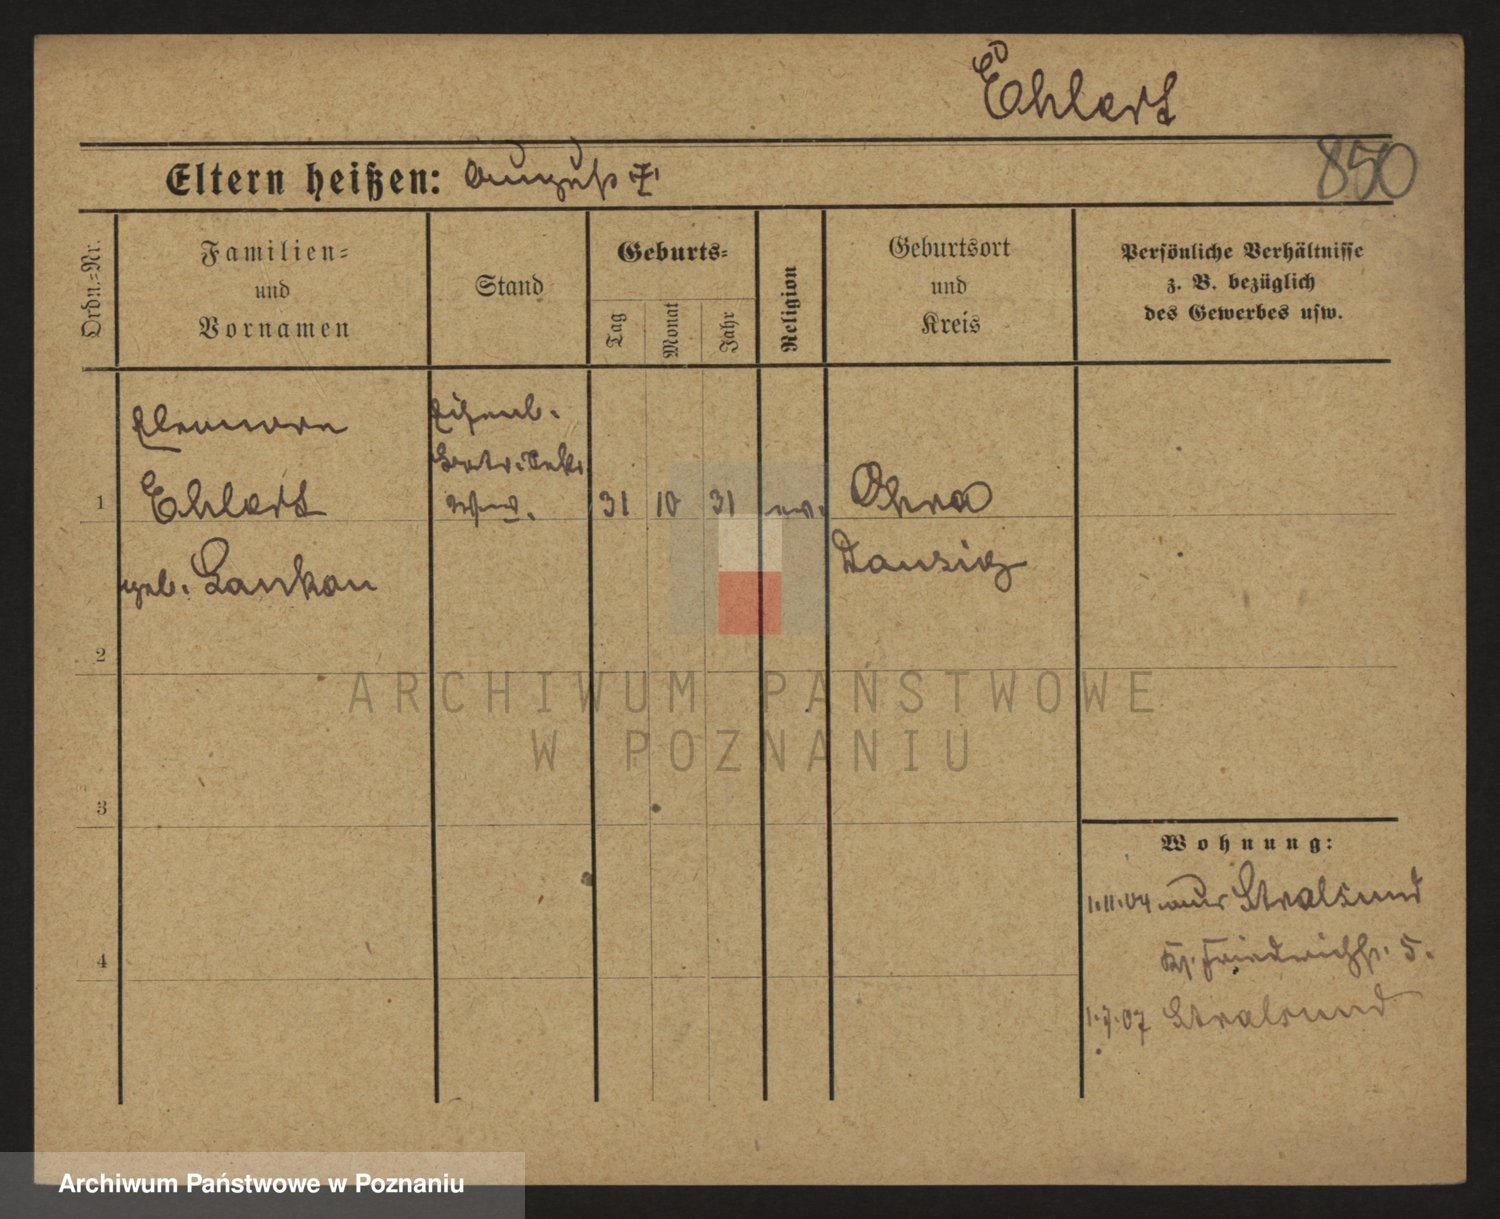 Ehlert
850
Eltern heißen: August
Ordn.-Nr.
Familien-
und
Vornamen
Stand
Geburts-
Tag
Monat
Jahr
Religion
Geburtsort
und
Kreis
Persönliche Verhältnisse
z. B. bezüglich
des Gewerbes usw.
Eleonore
Eisenb.
Betr. Sekr.
1 Ehlert Ww. 31 10 31 ev. Ohra
geb. Lankau
Danzig
2
ARCHIWUM PAŃSTWOWE
W POZNANIU
3
Wohnung:
1.11.04 aus Stralsund
Friedrichstr. 5.
4
1.7.07 Stralsund
Archiwum Państwowe w Poznaniu